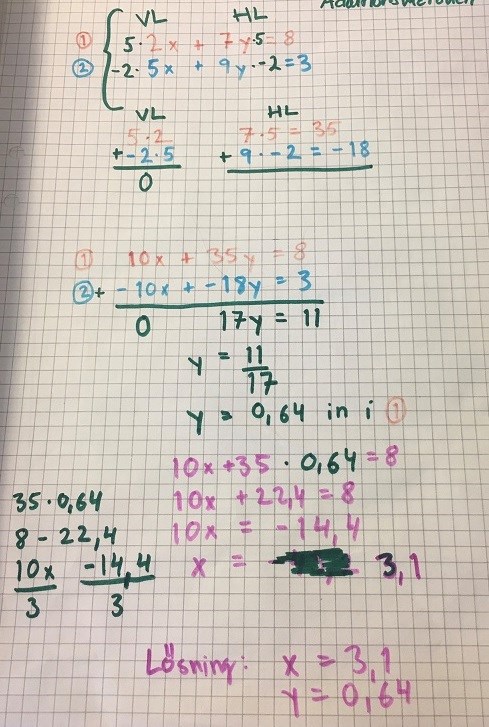 VL HL
① 5·2x + 7y·5 = 8
② -2·5x + 9y·-2 = 3
VL HL
5·2 7·5 = 35
+-2·5 + 9·-2 = -18
0
① 10x + 35y = 8
②+ -10x + -18y = 3
0 17y = 11
y = 11/17
y = 0,64 in i ①
10x + 35 · 0,64 = 8
35·0,64 10x + 22,4 = 8
8 - 22,4 10x = -14,4
10x/3 -14,4/3 x = 3,1
Lösning: x = 3,1
y = 0,64